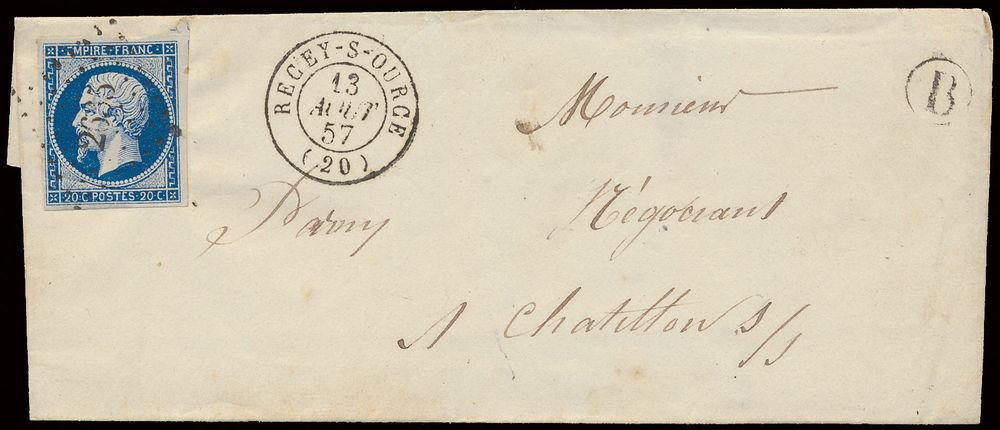 EMPIRE FRANC
2685
20 C POSTES 20 C
RECEY-S-OURCE
13
AOUT
57
(20)
B
Monsieur
Négociant
A Chatillon s/s